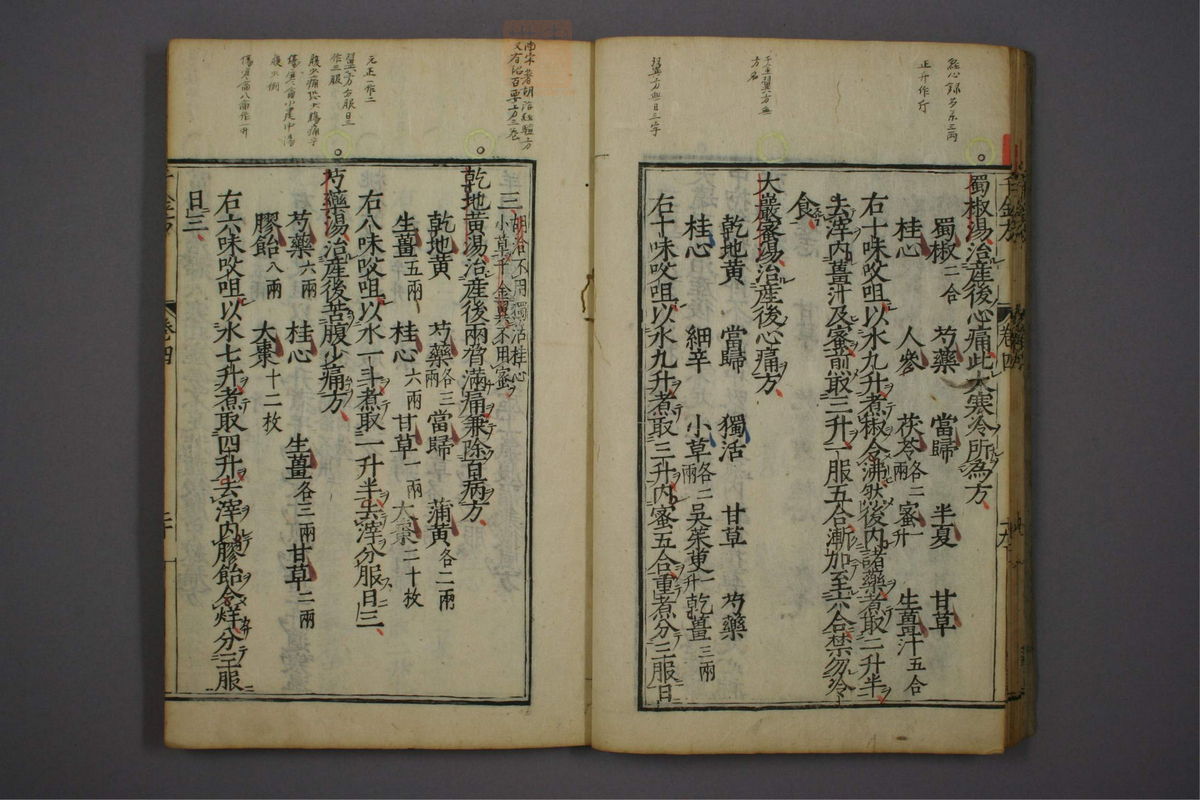 蜀椒湯治產後心痛此大寒冷所為方
蜀椒二合 芍藥 當歸 半夏 甘草
桂心 人參 茯苓各二兩 蜜一升 生薑汁五合
右十味㕮咀以水九升煮椒令沸然後內諸藥煮取二升半
去滓內薑汁及蜜煎取三升一服五合漸加至六合禁勿冷
食
大巖蜜湯治產後心痛方
乾地黃 當歸 獨活 甘草 芍藥
桂心 細辛 小草各二兩 吳茱萸一升 乾薑三兩
右十味㕮咀以水九升煮取三升內蜜五合重煮分三服日
三胡洽不用獨活桂心
小草千金翼不用蜜
乾地黃湯治產後兩脅滿痛兼除百病方
乾地黃 芍藥各三兩 當歸 蒲黃各二兩
生薑五兩 桂心六兩 甘草一兩 大棗二十枚
右八味㕮咀以水一斗煮取二升半去滓分服日三
芍藥湯治產後苦腹少痛方
芍藥六兩 桂心 生薑各三兩 甘草二兩
膠飴八兩 大棗十二枚
右六味㕮咀以水七升煮取四升去滓內膠飴令烊分三服
日三
千金方
卷四